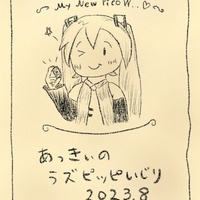 ~ My New Pico W... ♡ ~
あっきぃの
ラズピッピいじり
2023.8